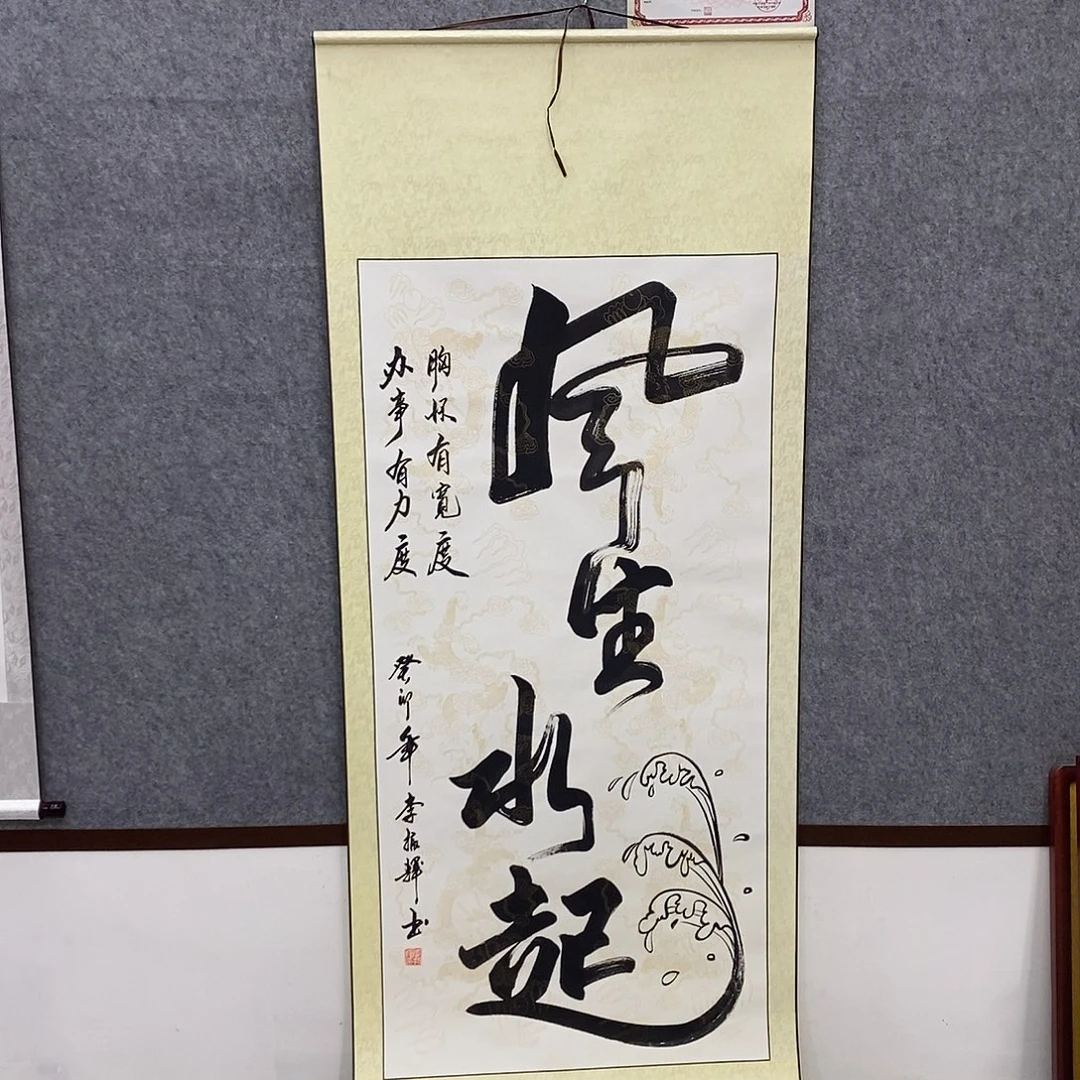 风生水起
胸怀有寬度
办事有力度
癸卯年 李振輝书